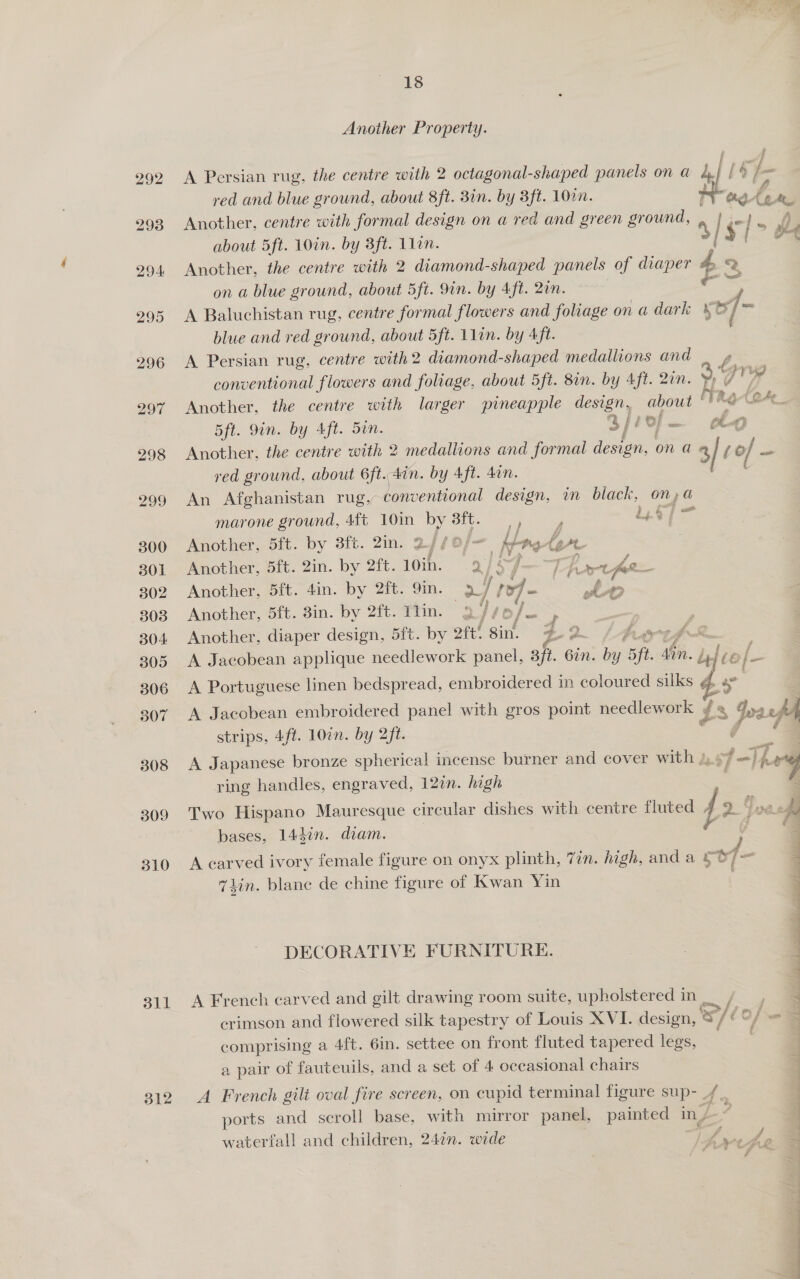 18
Another Property.
292 A Persian rug, the centre with 2 octagonal-shaped panels on a
red and blue ground, about 8ft. 3in. by 3ft. 10in.
293 Another, centre with formal design on a red and green ground,
about 5ft. 10in. by 3ft. 11in.
294 Another, the centre with 2 diamond-shaped panels of diaper
on a blue ground, about 5ft. 9in. by 4ft. 2in.
295 A Baluchistan rug, centre formal flowers and foliage on a dark
blue and red ground, about 5ft. 11in. by 4ft.
296 A Persian rug, centre with 2 diamond-shaped medallions and
conventional flowers and foliage, about 5ft. 8in. by 4ft. 2in.
297 Another, the centre with larger pineapple design, about
5ft. 9in. by 4ft. 5in. 3/10/-
298 Another, the centre with 2 medallions and formal design, on a 3/10/-
red ground, about 6ft. 4in. by 4ft. 4in.
299 An Afghanistan rug, conventional design, in black, on a
marone ground, 4ft 10in by 3ft.
300 Another, 5ft. by 3ft. 2in. 2/10/-
301 Another, 5ft. 2in. by 2ft. 10in.
302 Another, 5ft. 4in. by 2ft. 9in. 2/10/-
303 Another, 5ft. 3in. by 2ft. 11in. 2/10/-
304 Another, diaper design, 5ft. by 2ft. 8in. £2
305 A Jacobean applique needlework panel, 3ft. 6in. by 5ft. 4in. 4/10/-
306 A Portuguese linen bedspread, embroidered in coloured silks
307 A Jacobean embroidered panel with gros point needlework
strips, 4ft. 10in. by 2ft.
308 A Japanese bronze spherical incense burner and cover with
ring handles, engraved, 12in. high
309 Two Hispano Mauresque circular dishes with centre fluted £2
bases, 14½in. diam.
310 A carved ivory female figure on onyx plinth, 7in. high, and a
7½in. blanc de chine figure of Kwan Yin
DECORATIVE FURNITURE.
311 A French carved and gilt drawing room suite, upholstered in
crimson and flowered silk tapestry of Louis XVI. design,
comprising a 4ft. 6in. settee on front fluted tapered legs,
a pair of fauteuils, and a set of 4 occasional chairs
312 A French gilt oval fire screen, on cupid terminal figure sup-
ports and scroll base, with mirror panel, painted in
waterfall and children, 24in. wide